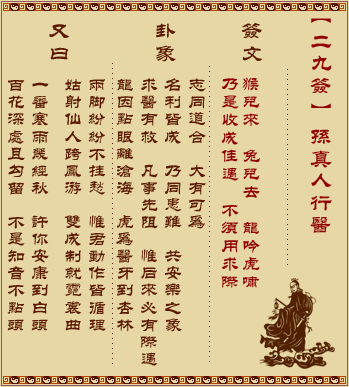 【二九簽】 孫真人行醫
簽文
猴兒來 兔兒去 龍吟虎嘯
乃是收成佳遇 不須用求際
卦象
志同道合 大有可為
名利皆成 乃同患難 共安樂之象
求醫有救 凡事先阻 惟后來必有際遇
龍因點眼離滄海 虎爲醫牙到杏林
又曰
兩腳紛紛不挂愁 惟君動作皆循理
姑射仙人跨鳳游 雙成制就霓裳曲
一番寒雨幾經秋 許你安康到白頭
百花深處且勾留 不是知音不點頭